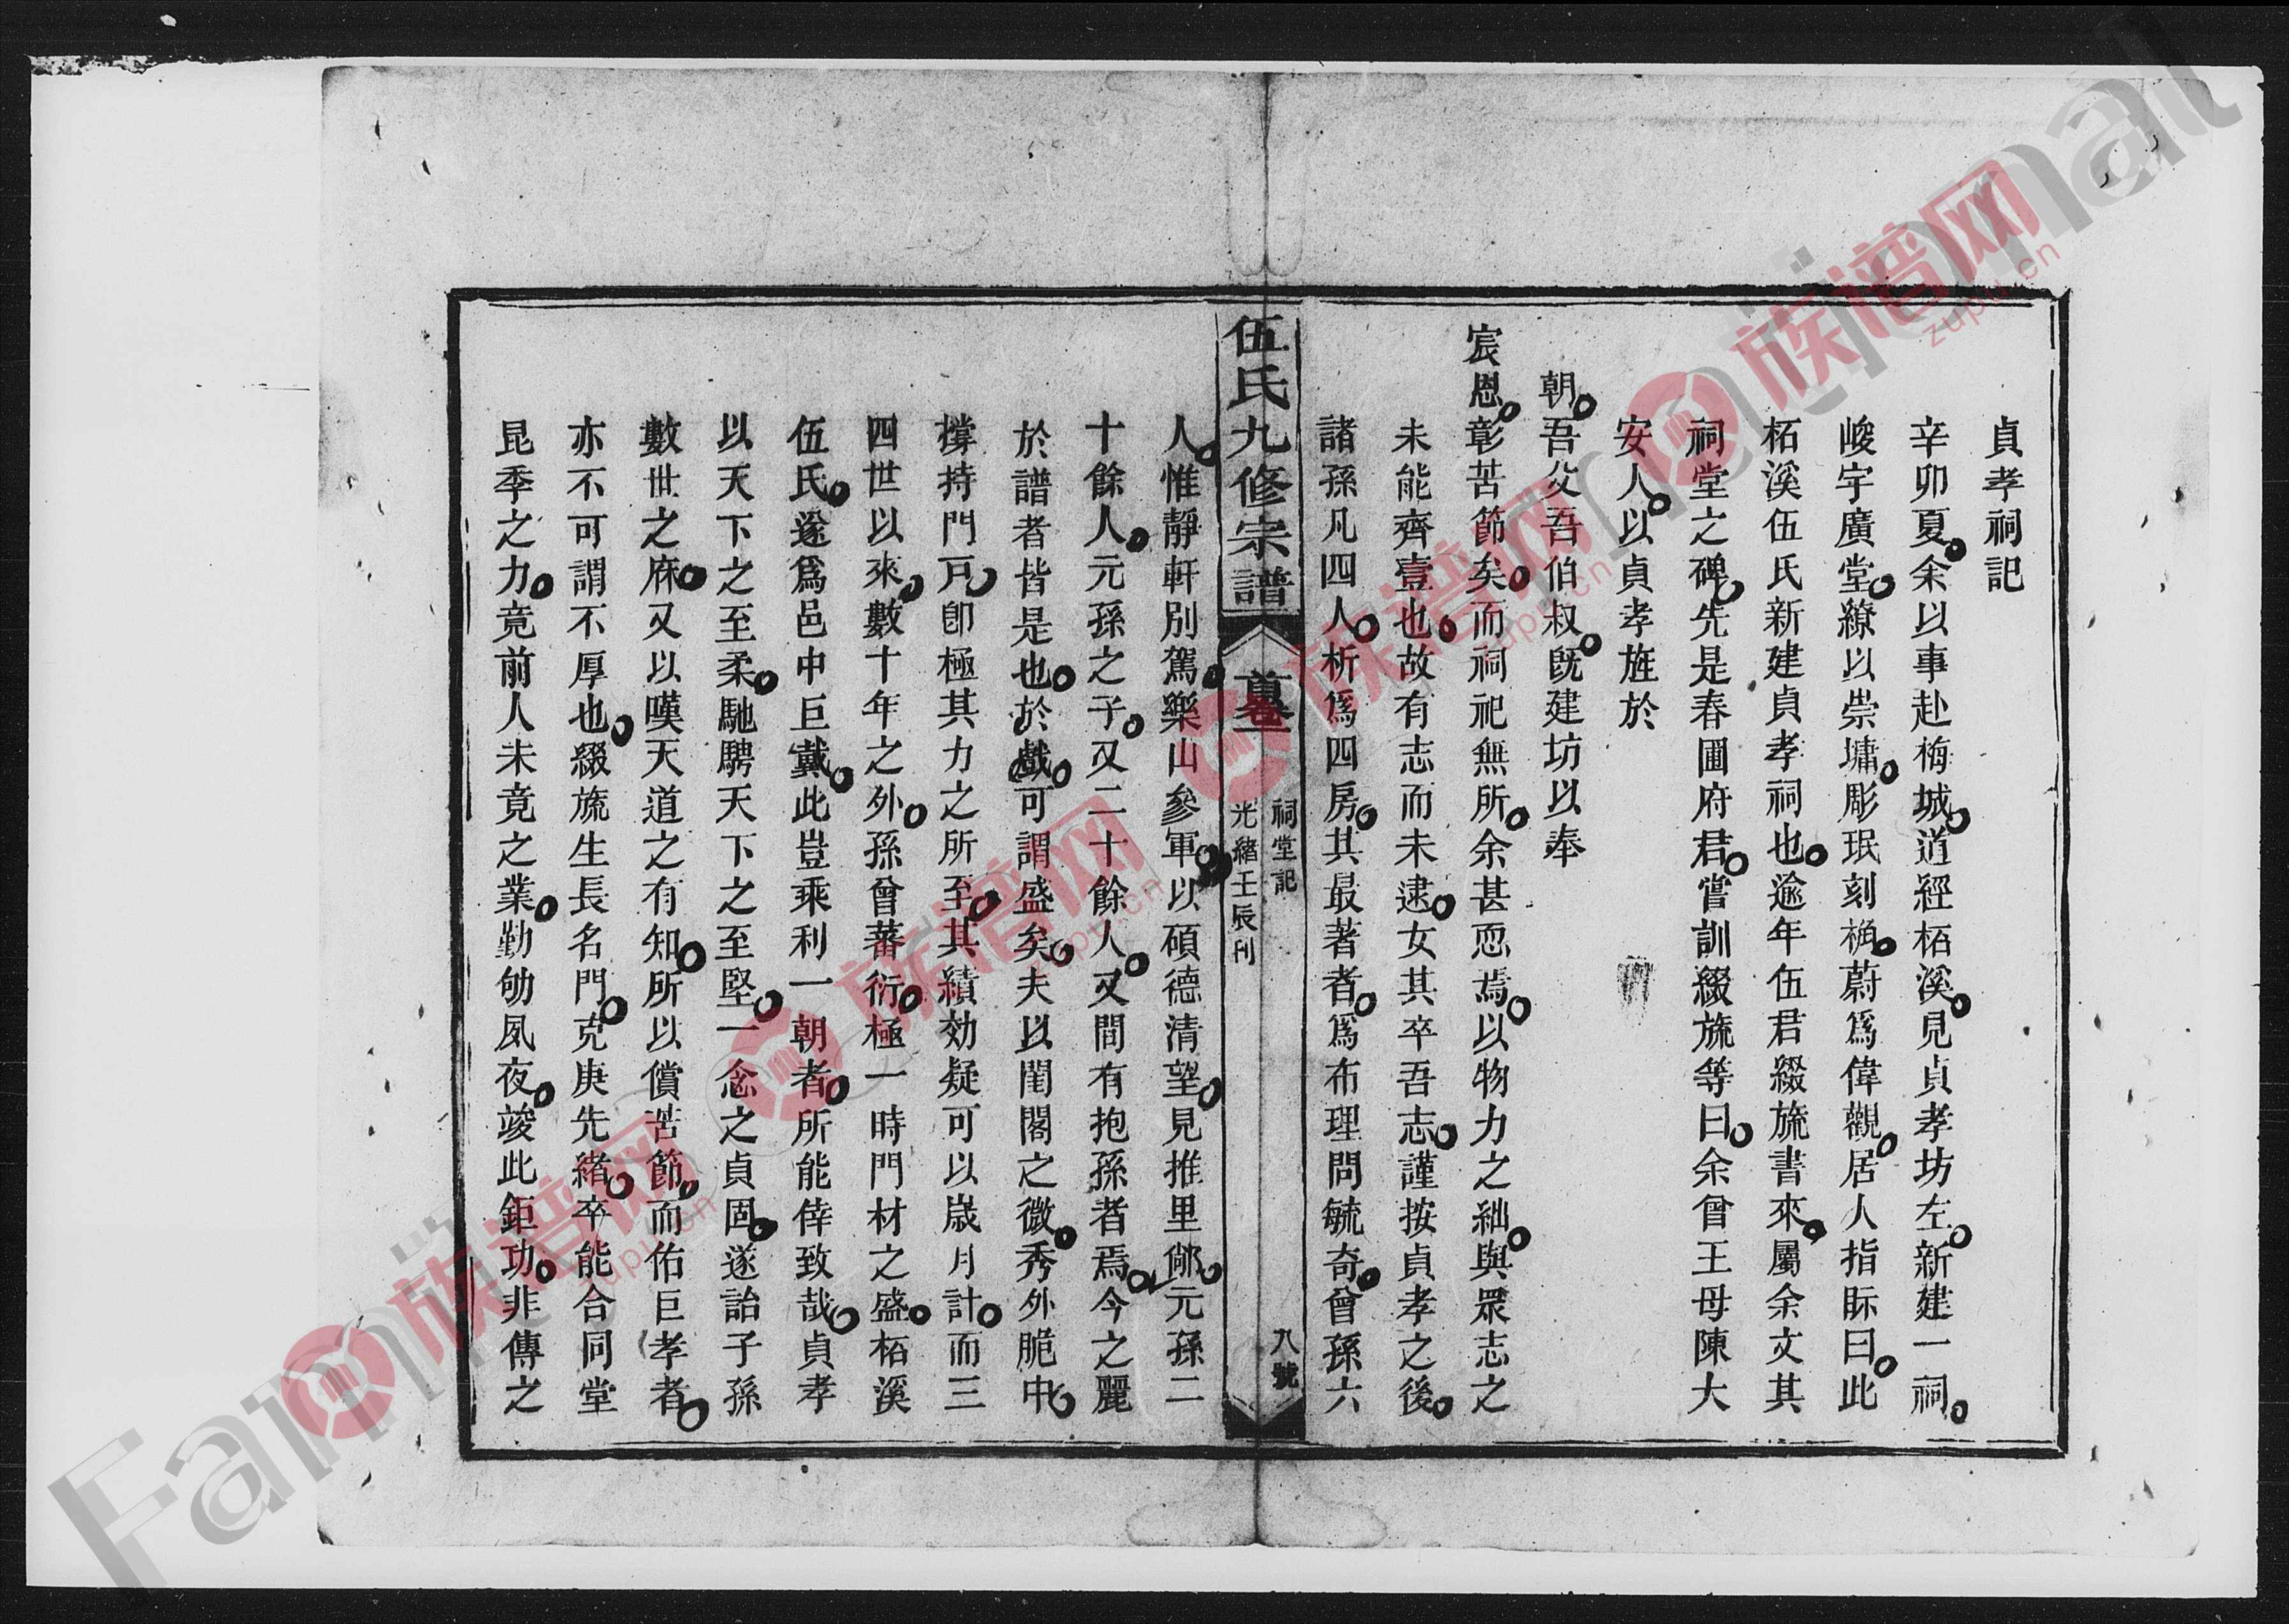 貞孝祠記
辛卯夏余以事赴梅城道經栢溪見貞孝坊左新建一祠
峻宇廣堂繚以崇墉彫珉刻桷蔚爲偉觀居人指眎曰此
栢溪伍氏新建貞孝祠也逾年伍君綴旒書來屬余文其
祠堂之碑先是春圃府君嘗訓綴旒等曰余曾王母陳大
安人以貞孝旌於
朝吾父吾伯叔旣建坊以奉
宸恩彰苦節矣而祠祀無所余甚恧焉以物力之絀與眾志之
未能齊壹也故有志而未逮女其卒吾志謹按貞孝之後
諸孫凡四人析爲四房其最著者爲布理問毓奇曾孫六
伍氏九修宗譜
卷
祠堂記
光緒壬辰刊
八號
人惟靜軒別駕樂山參軍以碩德清望見推里鄉元孫二
十餘人元孫之子又二十餘人又間有抱孫者焉今之麗
於譜者皆是也於戲可謂盛矣夫以閨閣之微秀外脆中
撐持門戸卽極其力之所至其績効疑可以歲月計而三
四世以來數十年之外孫曾蕃衍極一時門材之盛栢溪
伍氏遂爲邑中巨室此豈乘利一朝者所能倖致哉貞孝
以天下之至柔馳騁天下之至堅一念之貞固遂詒子孫
數世之庥又以嘆天道之有知所以償苦節而佑巨孝者
亦不可謂不厚也綴旒生長名門克庚先緒卒能合同堂
昆季之力竟前人未竟之業勤劬夙夜竣此鉅功非傳之
族谱网
zupu.cn
族谱网
zupu.cn
族谱网
zupu.cn
族谱网
zupu.cn